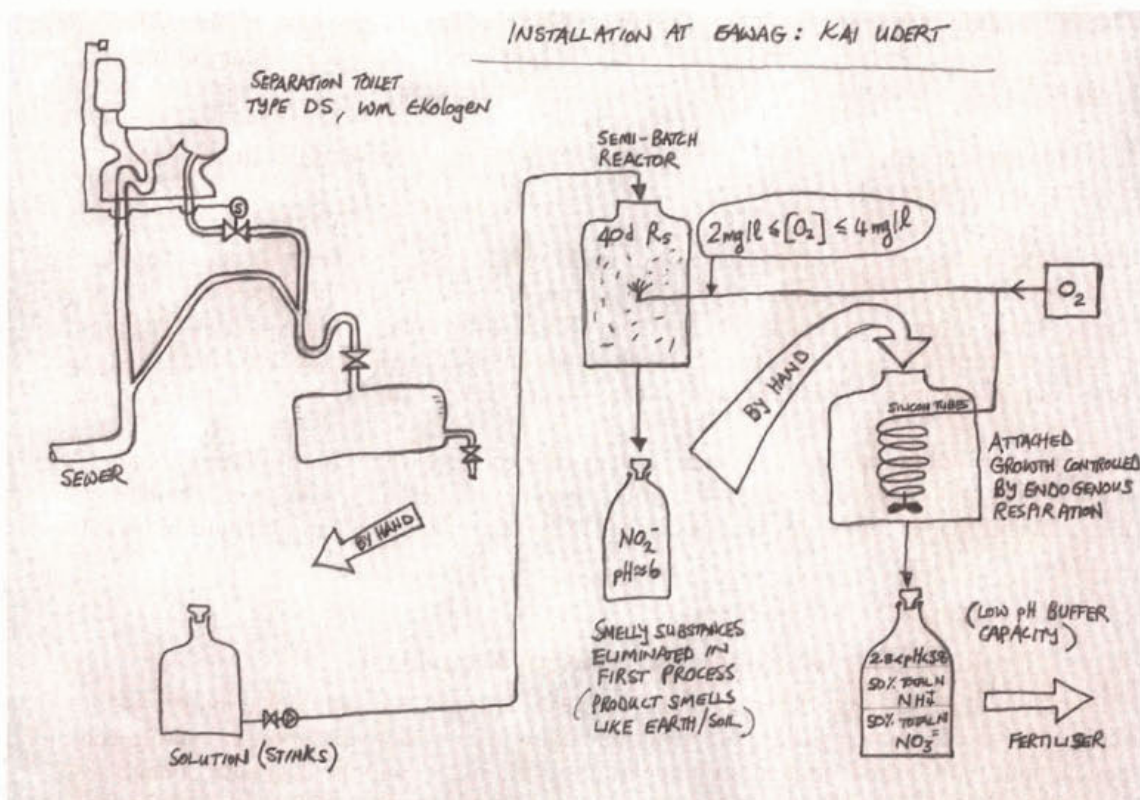 INSTALLATION AT EAWAG: KAI UDERT
SEPARATION TOILET
TYPE DS, WM EKologen
S
SEWER
BY HAND
SOLUTION (STINKS)
SEMI-BATCH
REACTOR
40d Rs
2mg/l ≤ [O2] ≤ 4mg/l
O2
NO2-
pH≈6
SMELLY SUBSTANCES
ELIMINATED IN
FIRST PROCESS
(PRODUCT SMELLS
LIKE EARTH/SOIL)
BY HAND
SILICON TUBES
ATTACHED
GROWTH CONTROLLED
BY ENDOGENOUS
RESPIRATION
50% TOTAL N
NH4+
50% TOTAL N
NO3-
(LOW pH BUFFER
CAPACITY)
FERTILISER